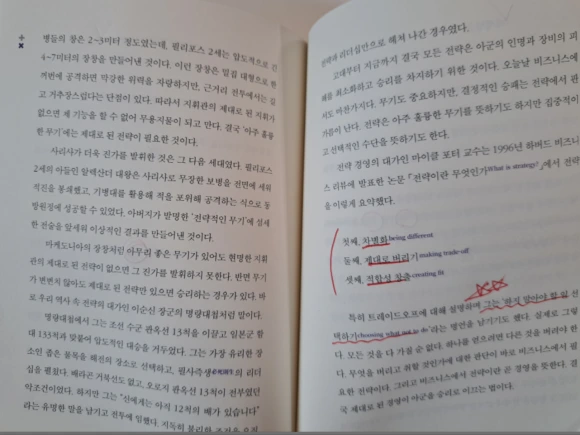 병들의 창은 2~3미터 정도였는데, 필리포스 2세는 압도적으로 긴
4~7미터의 장창을 만들어냈던 것이다. 이런 장창은 밀집 대형으로 한
꺼번에 공격하면 막강한 위력을 자랑하지만, 근거리 전투에서는 길
고 거추장스럽다는 단점이 있다. 따라서 지휘관의 제대로 된 지휘가
없으면 제 기능을 할 수 없어 무용지물이 되고 만다. 결국 '아주 훌륭
한 무기'에는 제대로 된 전략이 필요한 것이다.
사리사가 더욱 진가를 발휘한 것은 그 다음 세대였다. 필리포스
2세의 아들인 알렉산더 대왕은 사리사로 무장한 보병을 전면에 세워
적진을 봉쇄했고, 기병대를 활용해 적을 포위해 공격하는 식으로 동
방원정에 성공할 수 있었다. 아버지가 발명한 '전략적인 무기'에 섬세
한 전술을 덧세워 이상적인 결과를 만들어낸 것이다.
마케도니아의 장창처럼 아무리 좋은 무기가 있어도 현명한 지휘
관의 제대로 된 전략이 없으면 그 진가를 발휘하지 못한다. 반면 무기
가 변변치 않아도 제대로 된 전략만 있으면 승리하는 경우가 있다. 바
로 우리 역사 속 전략의 대가인 이순신 장군의 명량대첩처럼 말이다.
명량대첩에서 그는 조선 수군 판옥선 13척을 이끌고 일본군 함
대 133척과 맞붙어 압도적인 대승을 거두었다. 그는 가장 유리한 장
소인 좁은 물목을 해전의 장소로 선택하고, 필사즉생必死則生의 리더
십을 펼쳤다. 배라곤 거북선도 없고, 오로지 판옥선 13척이 전부였던
악조건이었다. 하지만 그는 "신에게는 아직 12척의 배가 있습니다"
라는 유명한 말을 남기고 전투에 임했다. 지독히 불리한 조건을 오직
전략과 리더십만으로 헤쳐 나간 경우였다.
고대부터 지금까지 결국 모든 전략은 아군의 인명과 장비의 피
해를 최소화하고 승리를 차지하기 위한 것이다. 오늘날 비즈니스에
서도 마찬가지다. 무기도 중요하지만, 결정적인 승패는 전략에서 판
가름이 난다. 전략은 아주 훌륭한 무기를 뜻하기도 하지만 집중적이
고 선택적인 수단을 뜻하기도 한다.
전략 경영의 대가인 마이클 포터 교수는 1996년 하버드 비즈니
스 리뷰에 발표한 논문 「전략이란 무엇인가What is strategy?」에서 전략
을 이렇게 요약했다.
첫째, 차별화being different
둘째, 제대로 버리기making trade-off
셋째, 적합성 창출creating fit
특히 트레이드오프에 대해 설명하며 그는 '하지 않아야 할 일 선
택하기choosing what not to do'라는 명언을 남기기도 했다. 실제로 그렇
다. 모든 것을 다 가질 순 없다. 하나를 얻으려면 다른 것을 버려야 한
다. 무엇을 버리고 취할 것인가에 대한 판단이 바로 비즈니스에서 필
요한 전략이다. 그리고 비즈니스에서 전략이란 곧 경영을 뜻한다. 결
국 제대로 된 경영이 아군을 승리로 이끄는 법이다.